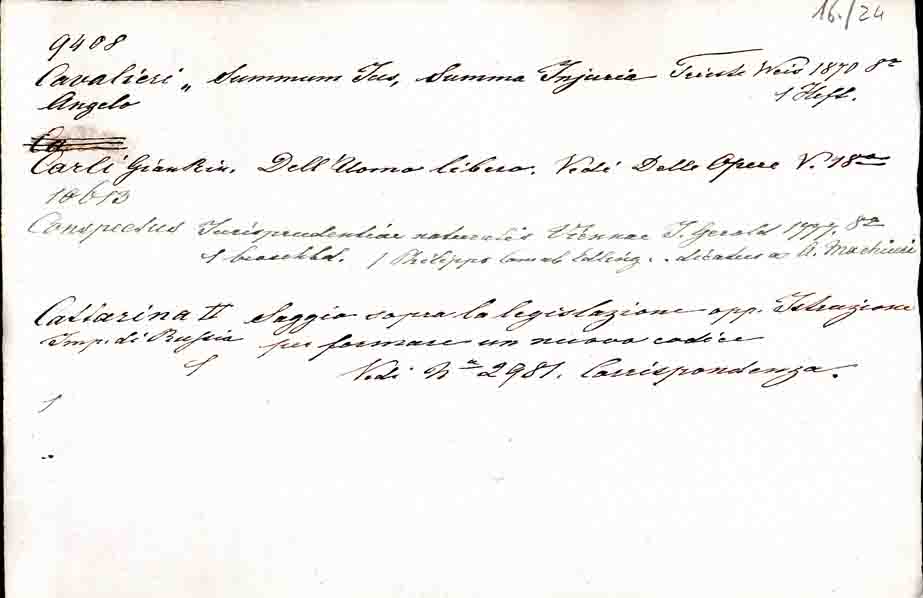 16./24
9408
Cavalieri „ Summum Jus, Summa Injuria Trieste Weis 1870 8º
Angelo 1 Heft.
Carli Gianrin. Dell'Uomo libero. Vedi Delle Opere V. 18º
10613
Conspectus Jurisprudentiae naturalis Viennae J. Gerold 1777. 8º
1 / Philippo Edling . . dicatus a A.
Cattarina II Saggio sopra la legislazione opp. Istruzione
Imp. di Russia per formare un nuovo codice
1 Vedi Nº 2981. Corrispondenza.
1